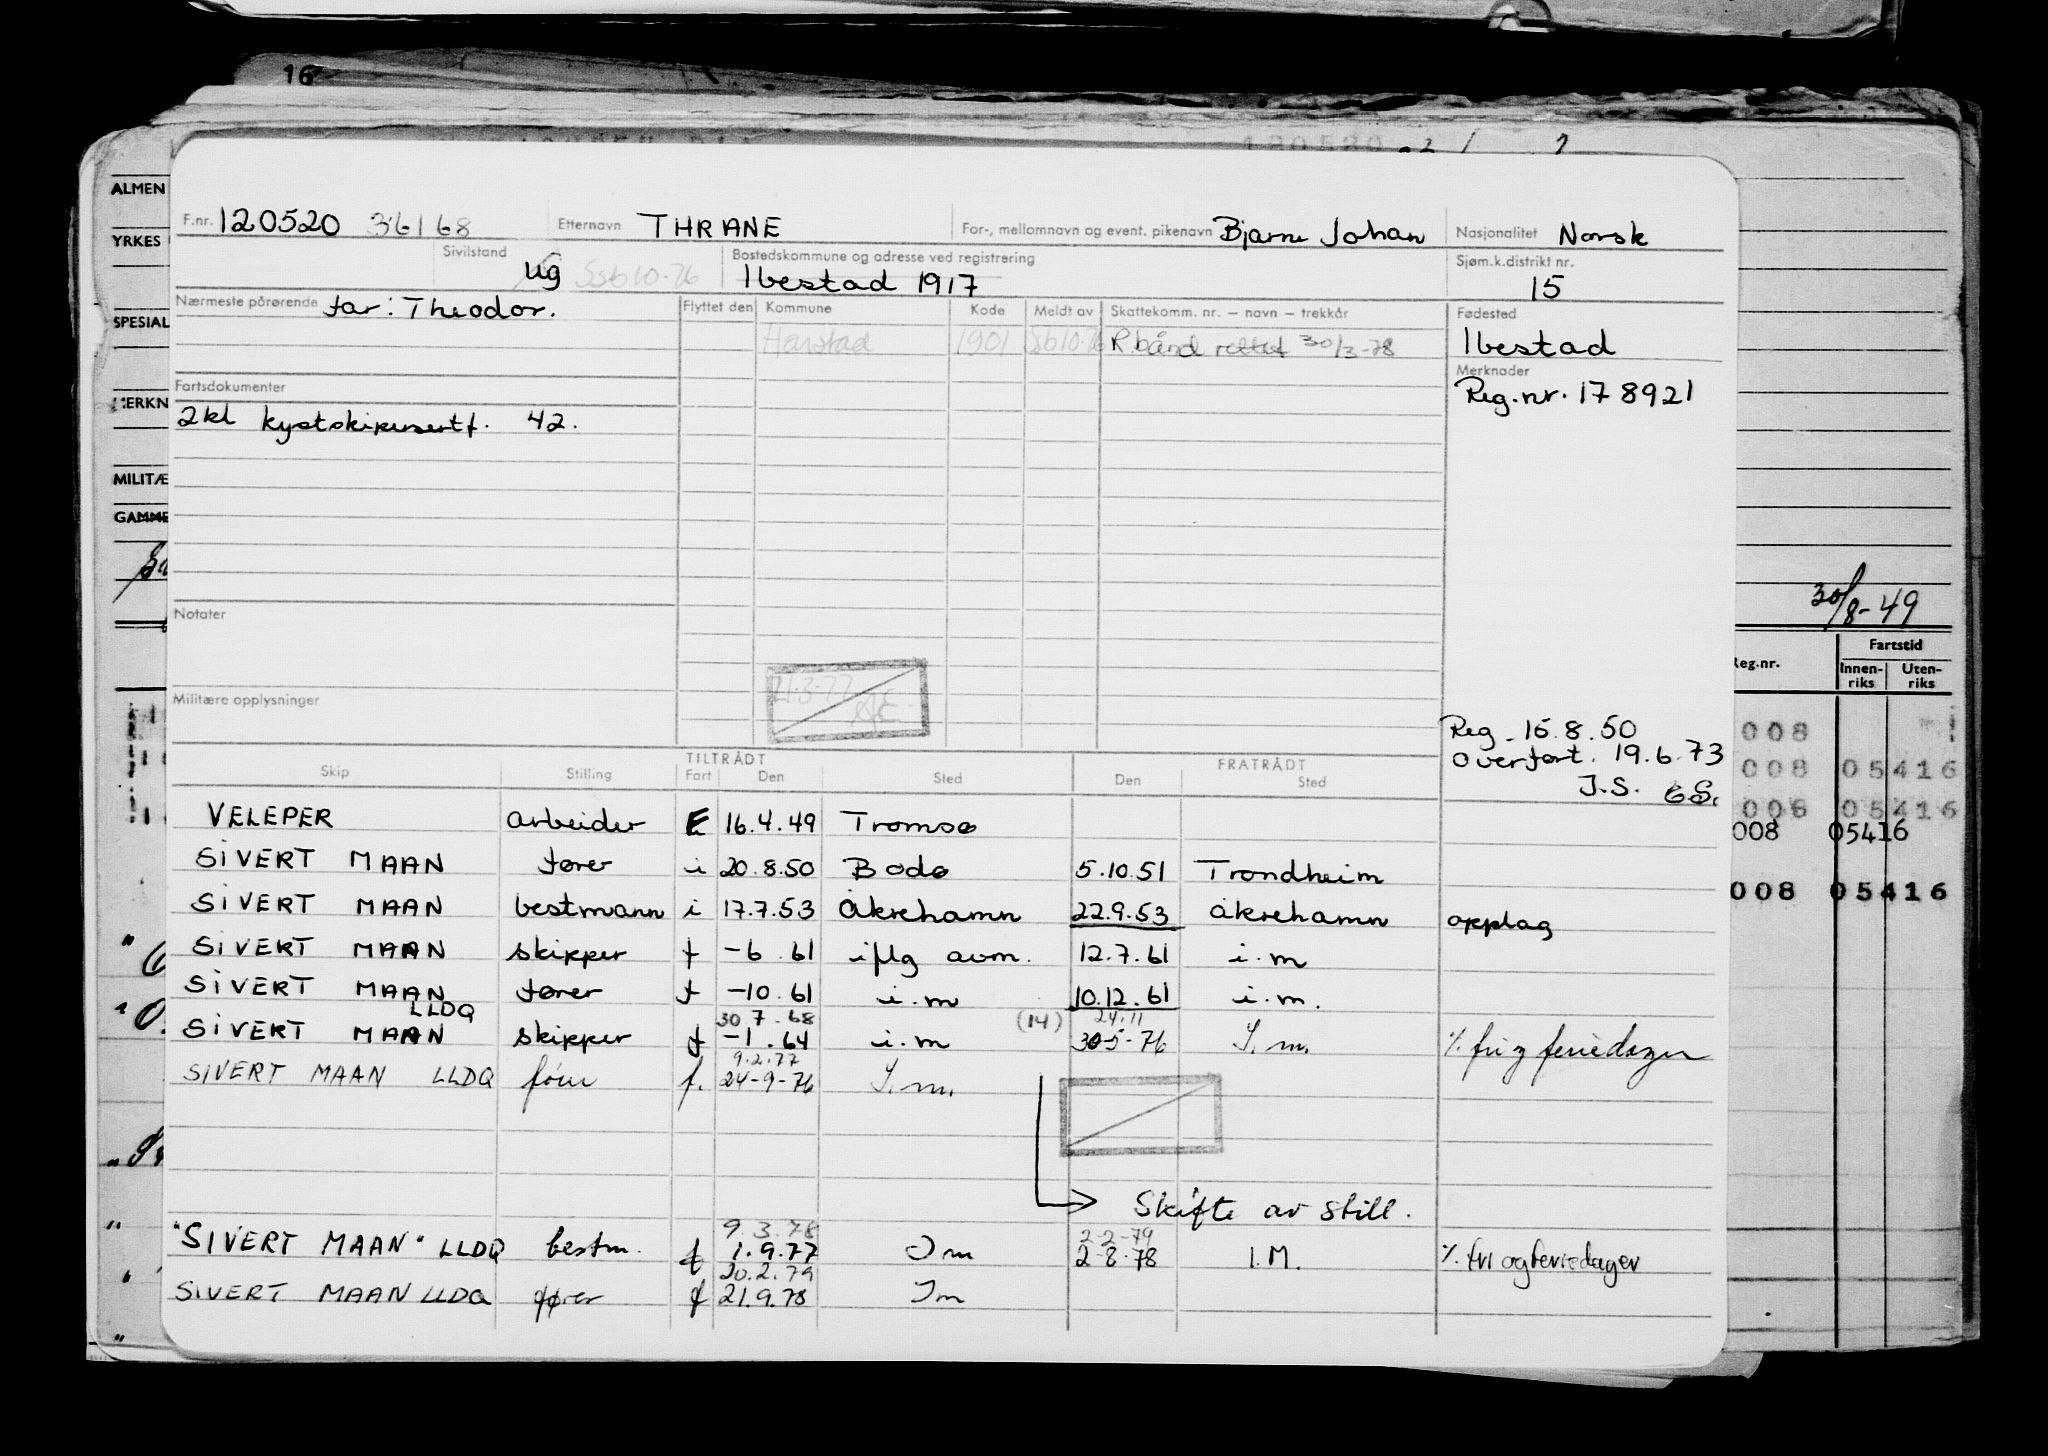 16
120520
ALMEN
YRKES
SPESIAL
MERKN
MILITÆ
GAMME
F.nr. 120520 36168 Etternavn THRANE For-, mellomnavn og event. pikenavn Bjarne Johan Nasjonalitet Norsk
Sivilstand ug Ssb10-76 Bostedskommune og adresse ved registrering Ibestad 1917 Sjøm.k.distrikt nr. 15
Nærmeste pårørende far: Theodor. Flyttet den Kommune Kode Meldt av Skattekomm. nr. — navn — trekkår Fødested
Harstad 1901 Sb10-76 R.bånd rettet 30/3-78 Ibestad
Fartsdokumenter Merknader
Reg.nr. 178921
2kl kystskippersertf. 42.
Notater
21-3-77
Militære opplysninger
Reg. 16.8.50
overført. 19.6.73
J.S. ES.
TILTRÅDT FRATRÅDT
Skip Stilling Fart Den Sted Den Sted
VELEPER arbeider E 16.4.49 Tromsø
SIVERT MAAN fører i 20.8.50 Bodø 5.10.51 Trondheim
SIVERT MAAN bestmann i 17.7.53 Åkrehamn 22.9.53 Åkrehamn opplag
SIVERT MAAN skipper f -6 61 iflg avm. 12.7.61 i.m
SIVERT MAAN fører f -10.61 i.m 10.12.61 i.m.
LLDQ 30 7.68 (14) 24.11
SIVERT MAAN skipper f -1.64 i.m 30-5-76 I.m. % fri og feriedager
9.2.77
SIVERT MAAN LLDQ fører f. 24-9-76 I.m.
Skifte av still.
9.3.78 2-2-79
"SIVERT MAAN" LLDQ bestm. f 1.9.77 Im 2-8-78 I.M. % fri og feriedager
20.2.79
SIVERT MAAN LLDQ fører f 21.9.78 Im
30/8-49
Fartstid
Reg.nr. Innen- Uten-
riks riks
008
008 05416
008 05416
008 05416
008 05416